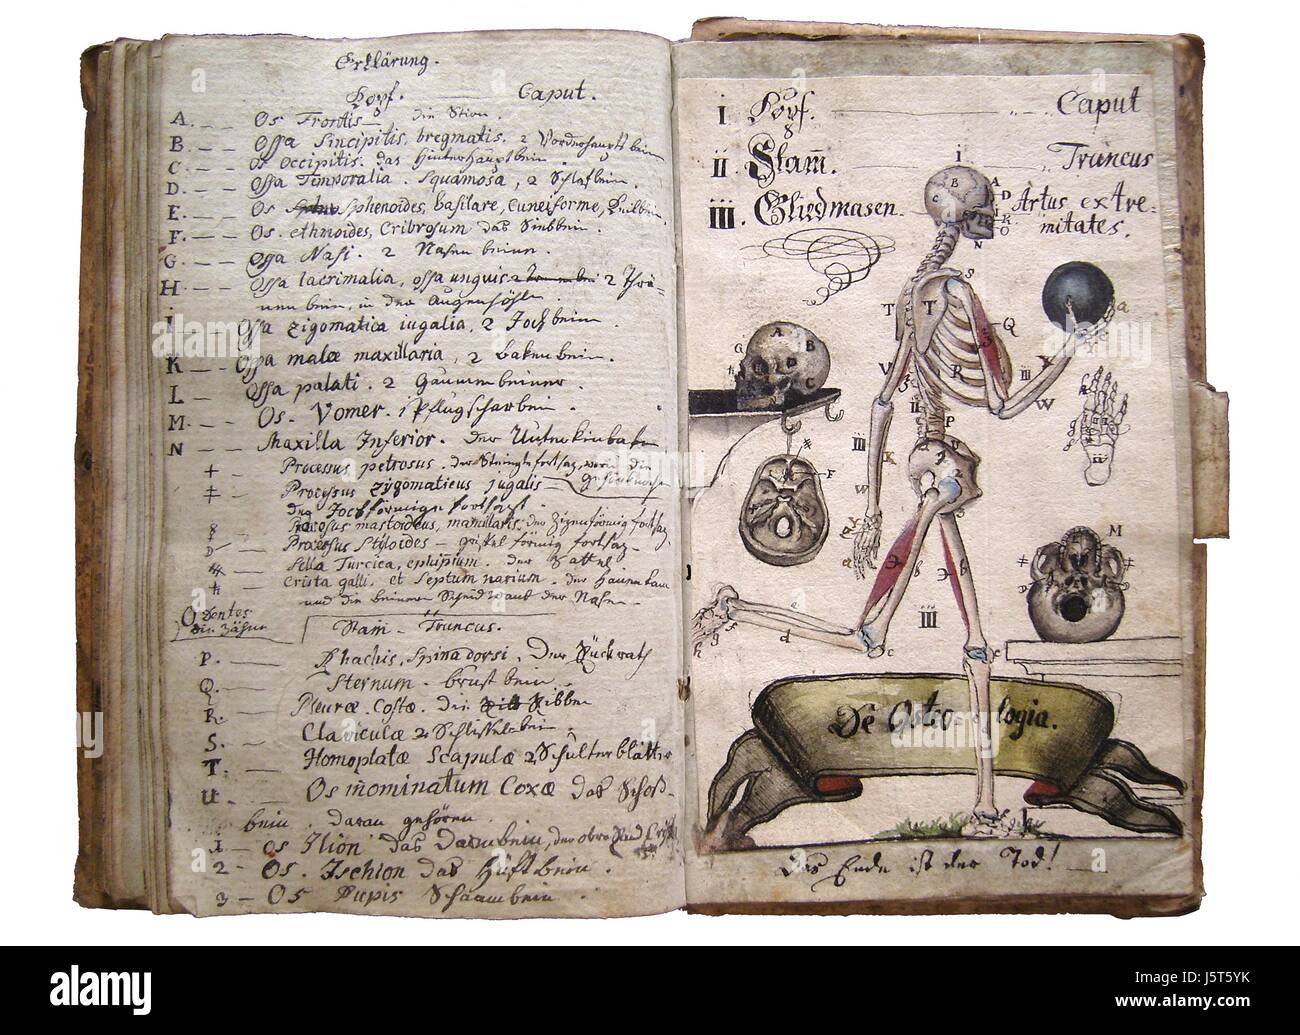 Erklärung.
Kopf. Caput.
A. Os Frontis die Stirn.
B Ossa Sincipitis, bregmatis. 2 Vorderhauptbein
C Os occipitis. das Hinterhauptbein.
D. Ossa Temporalia. Squamosa, 2 Schlafbein.
E. Os Sphenoides, basilare, cuneiforme, Keilbein
F. Os. ethnoides, Cribrosum das Siebbein.
G. Ossa Nasi. 2 Nasenbeine.
H Ossa lacrimalia, ossa unguis 2 Thrä-
nenbein, in der Augenhöhle.
i Ossa zigomatica iugalia, 2 Jochbein.
K Ossa malæ maxillaria, 2 bakenbein.
L Ossa palati. 2 Gaumenbeiner.
M. Os. Vomer. 1 Pflugscharbein.
N Maxilla Inferior. der Unterkinbaken
+ Processus petrosus. der
ǂ Processus zygomaticus jugalis
der Jochförmige fortsaz.
Processus mastoideus, mamillaris. der Zizenförmig fortsaz.
Processus Styloides - grifelförmig fortsaz.
Sella Turcica, ephipium. der Sattel
Crista galli. et Septum narium. der Hanenkam
und die beinerne Scheidwand der Nasen.
O Dentes
die Zähne
Stam̄ - Truncus.
P. Rhachis, Spina dorsi. Der Rückrath
Q. Sternum. brustbein.
R. Pleuræ. Costæ. die Ribben
S. Claviculæ 2 Schlüsselbein.
T. Homoplatæ Scapulæ 2 Schulterblätter
U. Os innominatum Coxæ das Schoß-
bein. daran gehören.
1 - Os Ilion das Darmbein, der obere
2 - Os. Ischion das Hüftbein.
3 - Os Pupis Schaambein.
I Kopf. Caput
II Stam̄. Truncus
III. Gliedmasen. Artus extre-
mitates.
De Osteo-logia.
Das Ende ist der Tod!
alamy
Image ID: J5T5YK
www.alamy.com